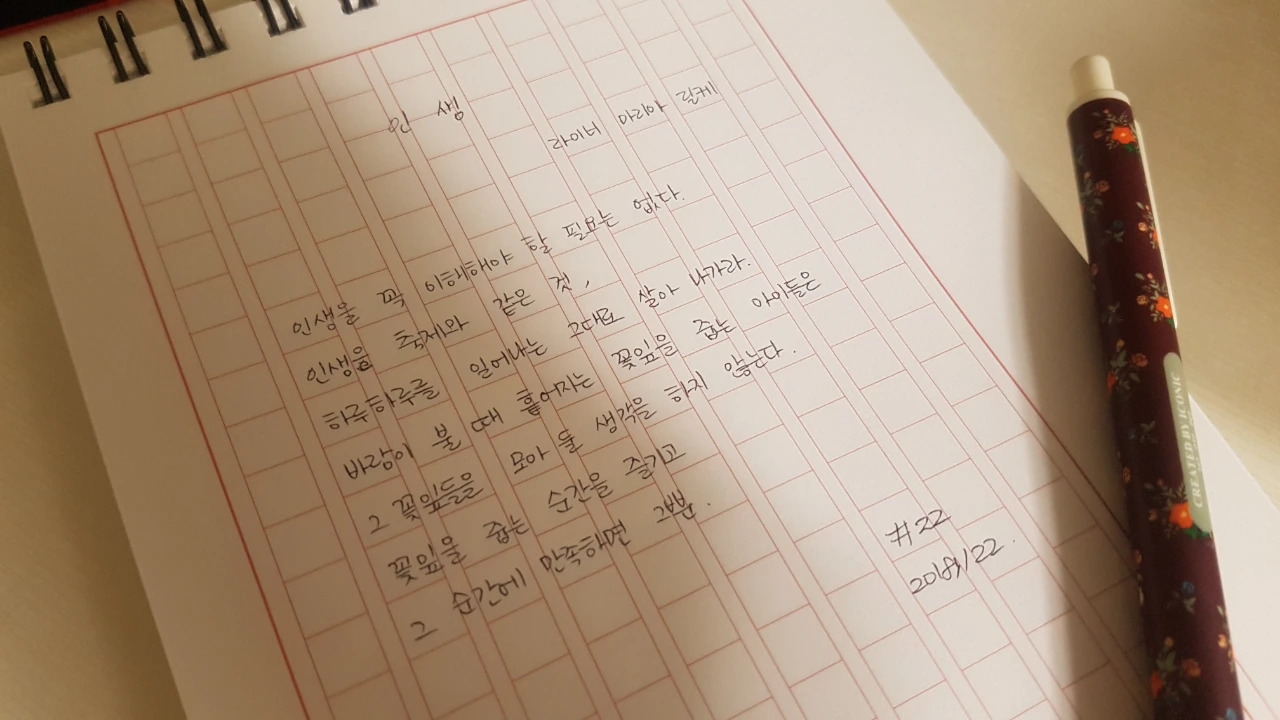 인생
라이너 마리아 릴케
인생을 꼭 이해해야 할 필요는 없다.
인생을 축제와 같은 것,
하루하루를 일어나는 그대로 살아 나가라.
바람이 불 때 흩어지는 꽃잎을 줍는 아이들은
그 꽃잎들을 모아 둘 생각을 하지 않는다.
꽃잎을 줍는 순간을 즐기고
그 순간에 만족하면 그뿐.
#22
CREATED BY ICONIC